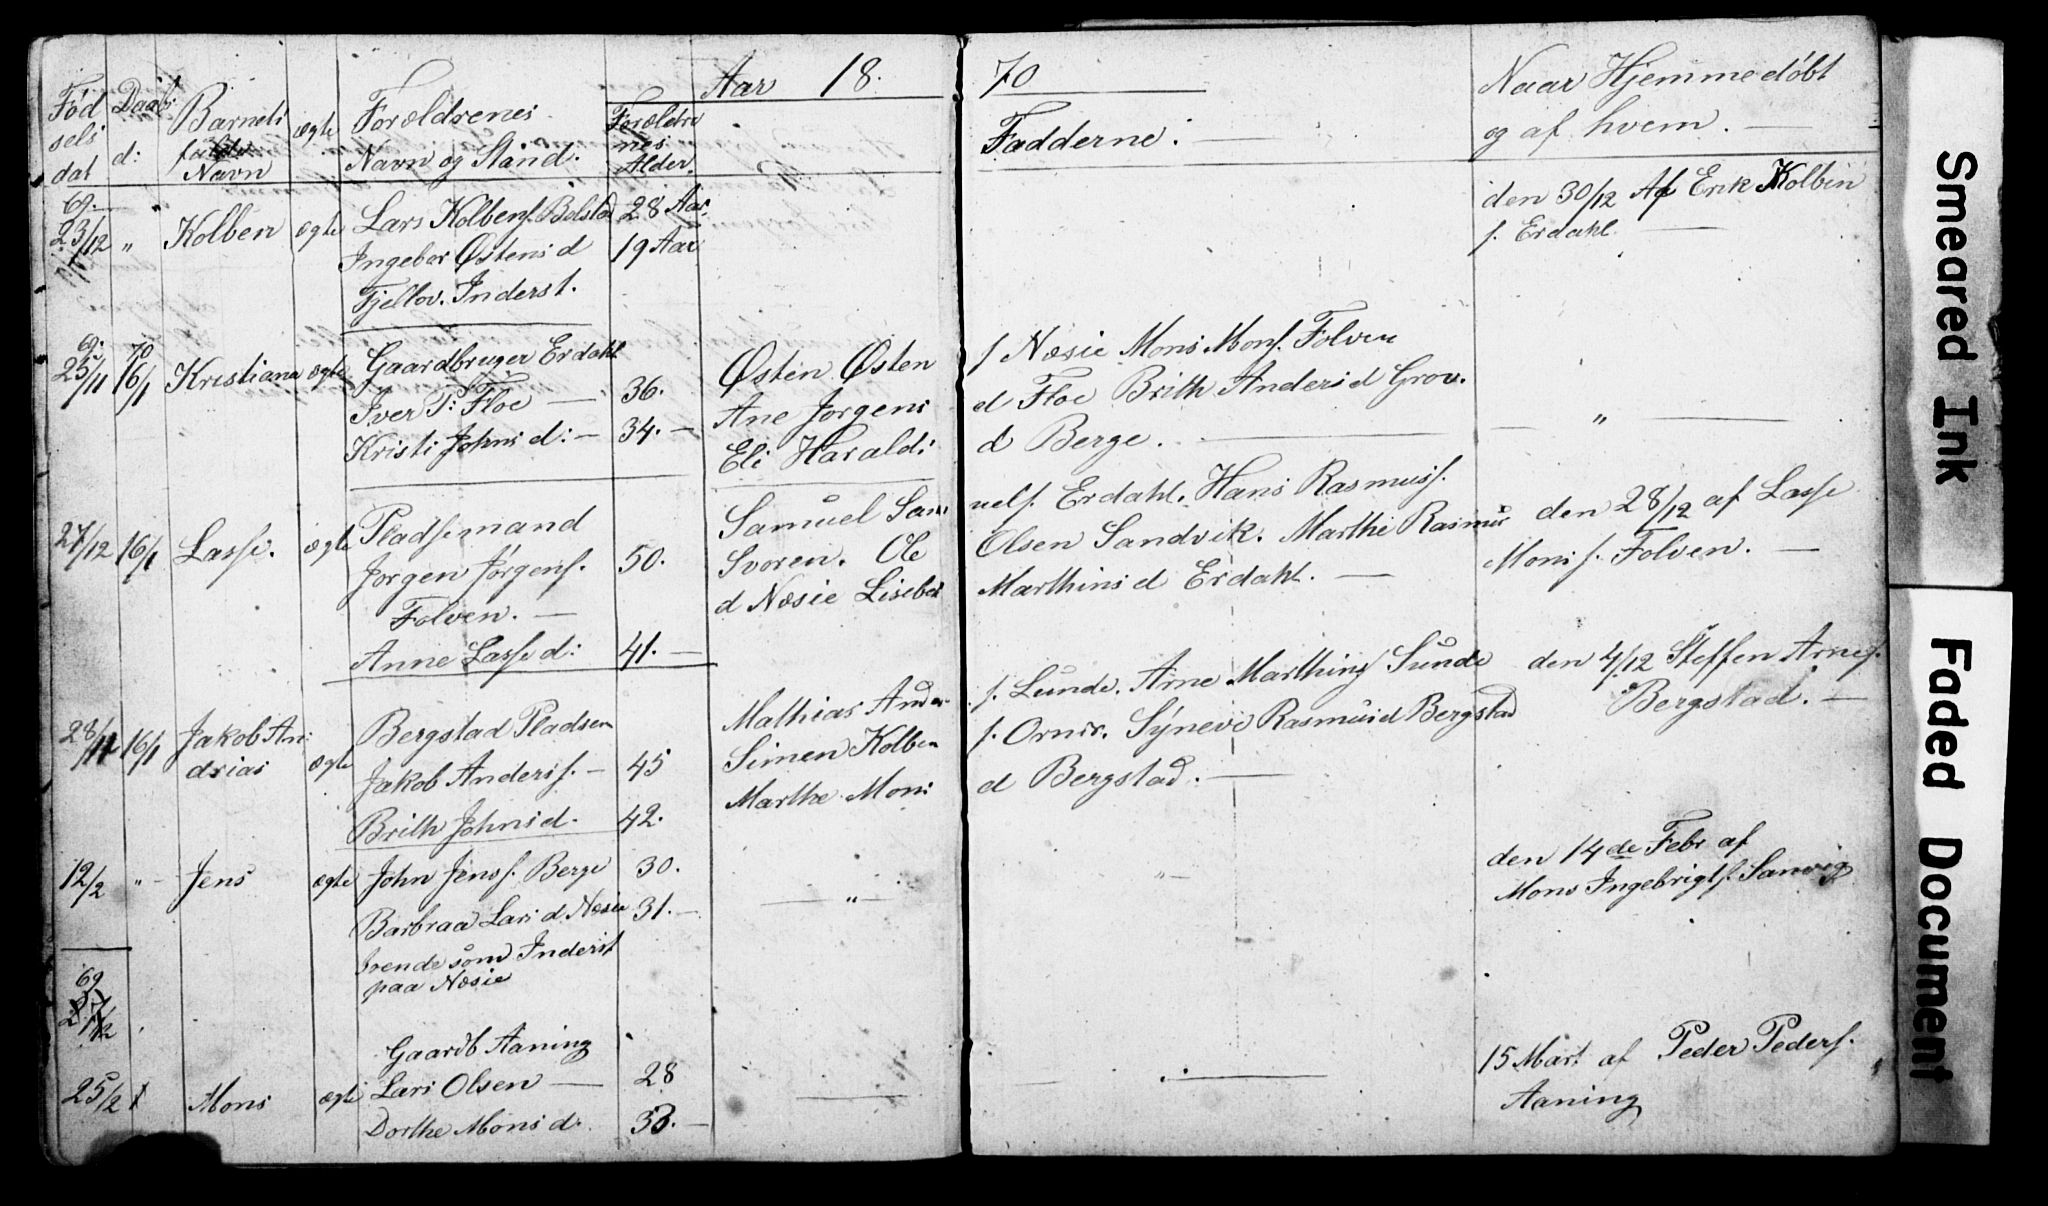 Aar 18. 70
Fød Daabs Barnets ægte Forældrenes Forældre Fadderne. Naar Hjemmedøbt
sels d: fulde Navn og Stand. nes og af hvem.
dat Navn Alder.
69.
23/12 " Kolben ægte Lars Kolbens. Bolstad 28 Aar. den 30/12 Af Erik Kolbin
Ingebor Østens d 19 Aar s. Erdahl
Fjellov. Inderst.
69. 70 Gaardbruger Erdahl
25/11 16/1 Kristiana ægte Iver P: Floe 36. Østen Østen s Næsie Mons Mons. Folven
Kristi Johns d: 34. Ane Jørgens d Floe Brith Anders d Grov. "
Eli Haralds d Berge.
27/12 16/1 Lasse. ægte Pladsemand Samuel Sam uels. Erdahl. Hans Rasmuss. den 28/12 af Lasse
Jørgen Jørgens. 50. Svoren. Ole Olsen Sandvik. Marthe Rasmus Mons s. Folven.
Folven. d Næsie Lisebet Marthins d Erdahl.
Anne Lasse d: 41.
28/11 16/1 Jakob An: ægte Bergstad Pladsen Mathias Anders s. Lunde. Arne Marthins Sunde den 4/12 Steffen Arnes.
drias Jakob Anders s. 45 Simen Kolben s. Ornes. Syneve Rasmus d Bergstad Bergstad.
Brith Johns d. 42. Marthe Mons d Bergstad.
12/2 " Jens ægte John Jens s. Berge 30. " " den 14de Febr af
Barbraa Lars d. Næsie 31. Mons Ingebrigts. Sanvig
boende som Inderst
paa Næsie
69
Gaardb Aaning
25/2 Mons ægte Lars Olsen 28 15 Mart af Peder Peders.
Dorthe Mons d. 33. Aaning
Smeared Ink
Faded Document